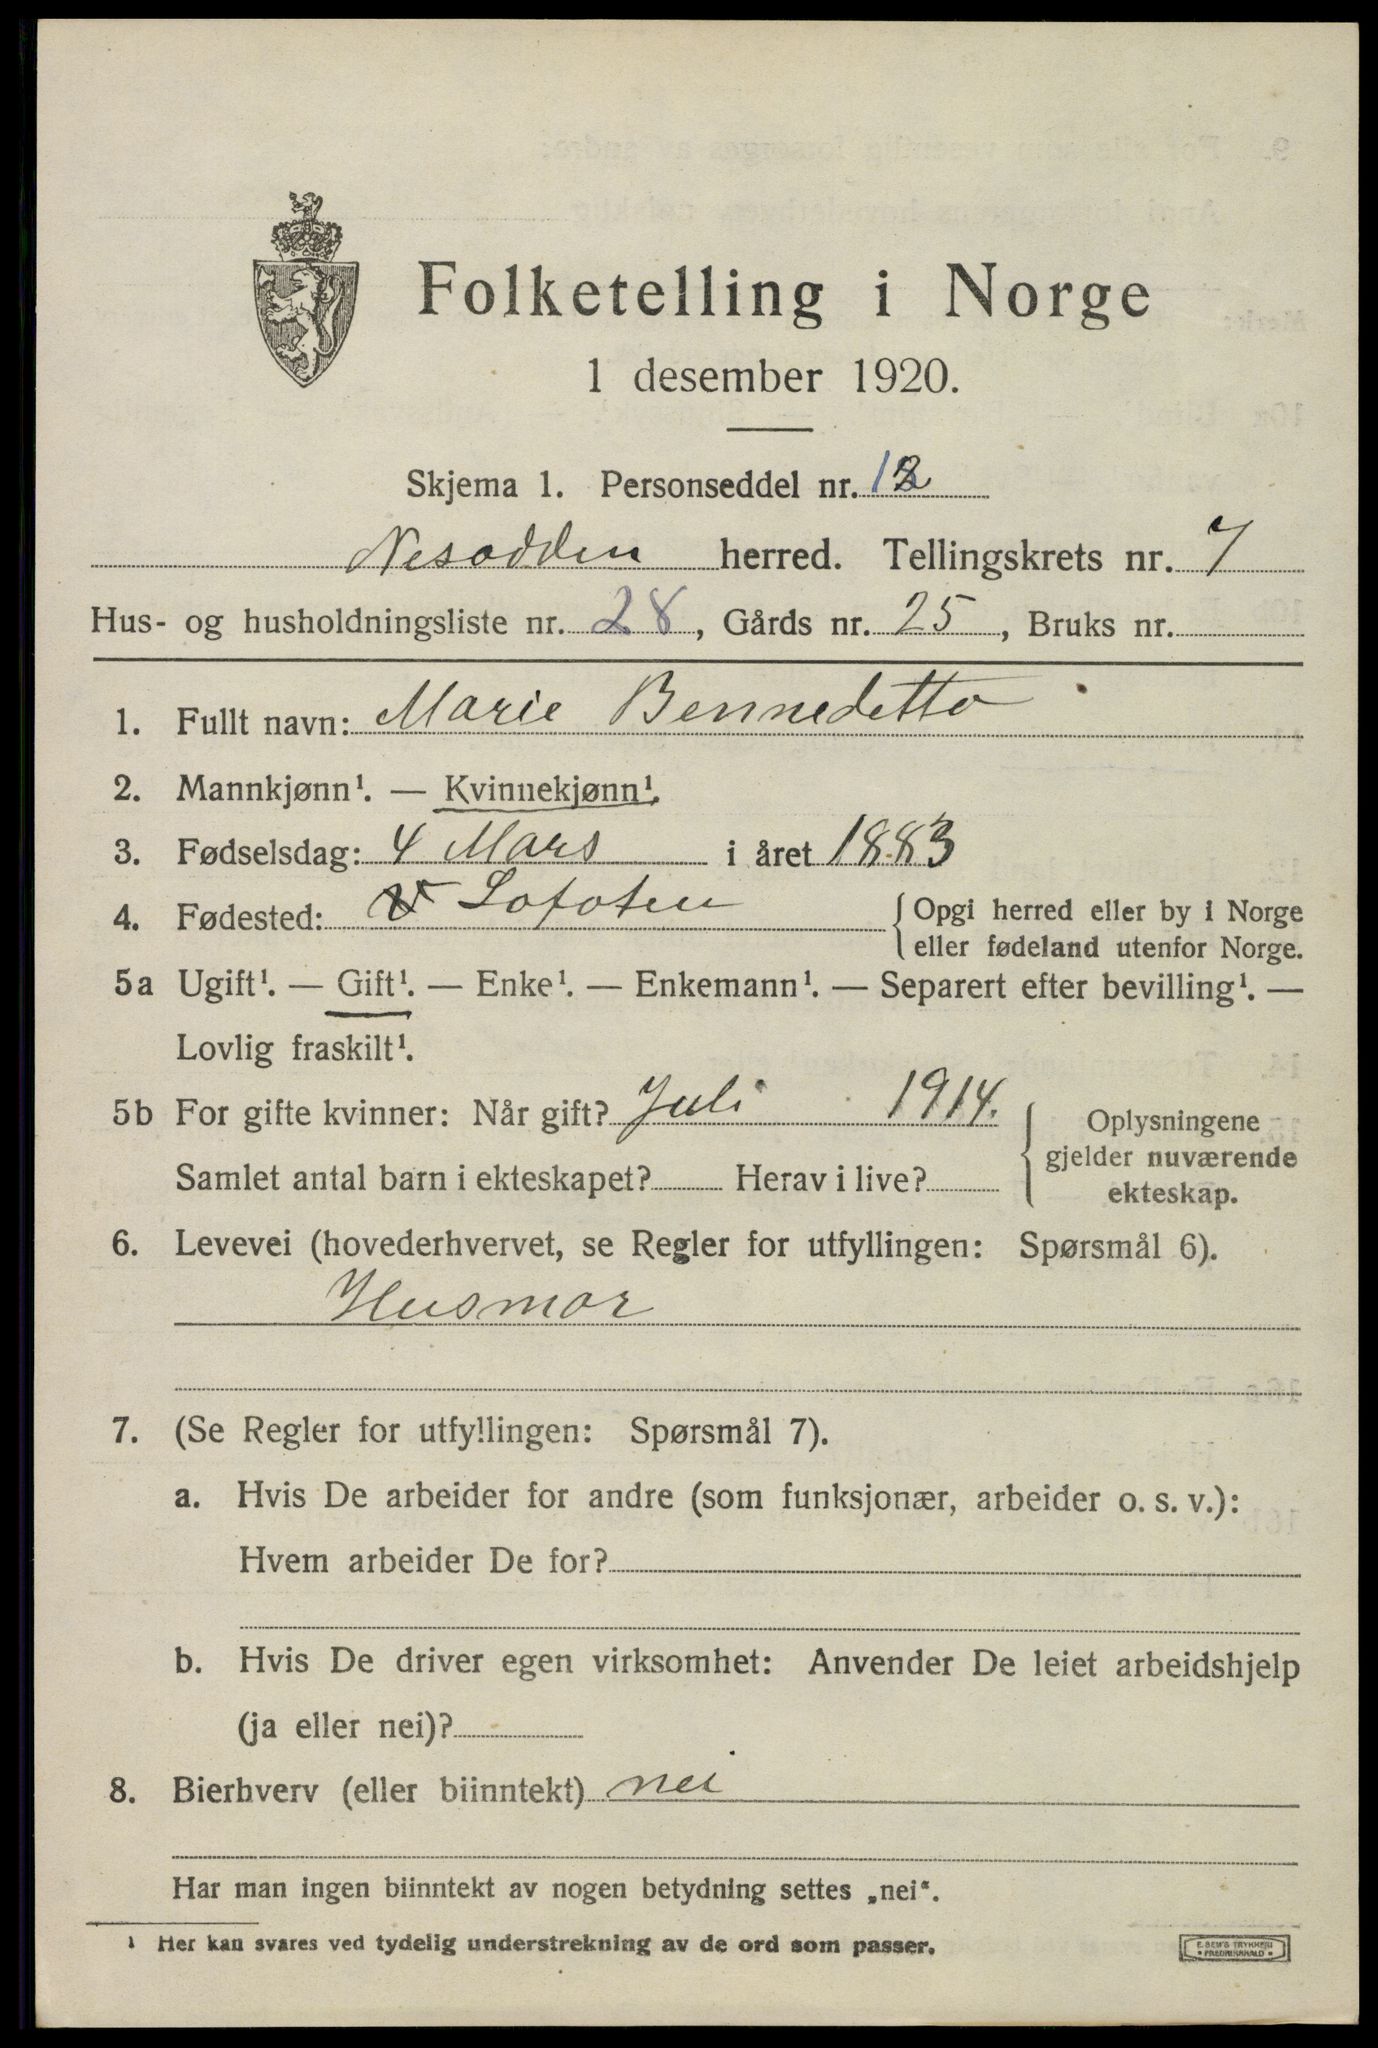 Folketelling i Norge
1 desember 1920.
Skjema 1. Personseddel nr. 12
Nesodden herred. Tellingskrets nr. 7
Hus- og husholdningsliste nr. 28, Gårds nr. 25, Bruks nr.
1. Fullt navn: Marie Bennedetto
2. Mannkjønn¹. — Kvinnekjønn¹.
3. Fødselsdag: 4 Mars i året 1883
4. Fødested: V Lofoten {Opgi herred eller by i Norge
eller fødeland utenfor Norge.
5a Ugift¹. — Gift¹. — Enke¹. — Enkemann¹. — Separert efter bevilling¹. —
Lovlig fraskilt¹.
5b For gifte kvinner: Når gift? Juli 1914. { Oplysningene
gjelder nuværende
ekteskap.
Samlet antal barn i ekteskapet? Herav i live?
6. Levevei (hovederhvervet, se Regler for utfyllingen: Spørsmål 6).
Husmor
7. (Se Regler for utfyllingen: Spørsmål 7).
a. Hvis De arbeider for andre (som funksjonær, arbeider o. s. v.):
Hvem arbeider De for?
b. Hvis De driver egen virksomhet: Anvender De leiet arbeidshjelp
(ja eller nei)?
8. Bierhverv (eller biinntekt) nei
Har man ingen biinntekt av nogen betydning settes „nei“.
¹ Her kan svares ved tydelig understrekning av de ord som passer.
E. SEM'S TRYKKERI
• FREDRIKSHALD •